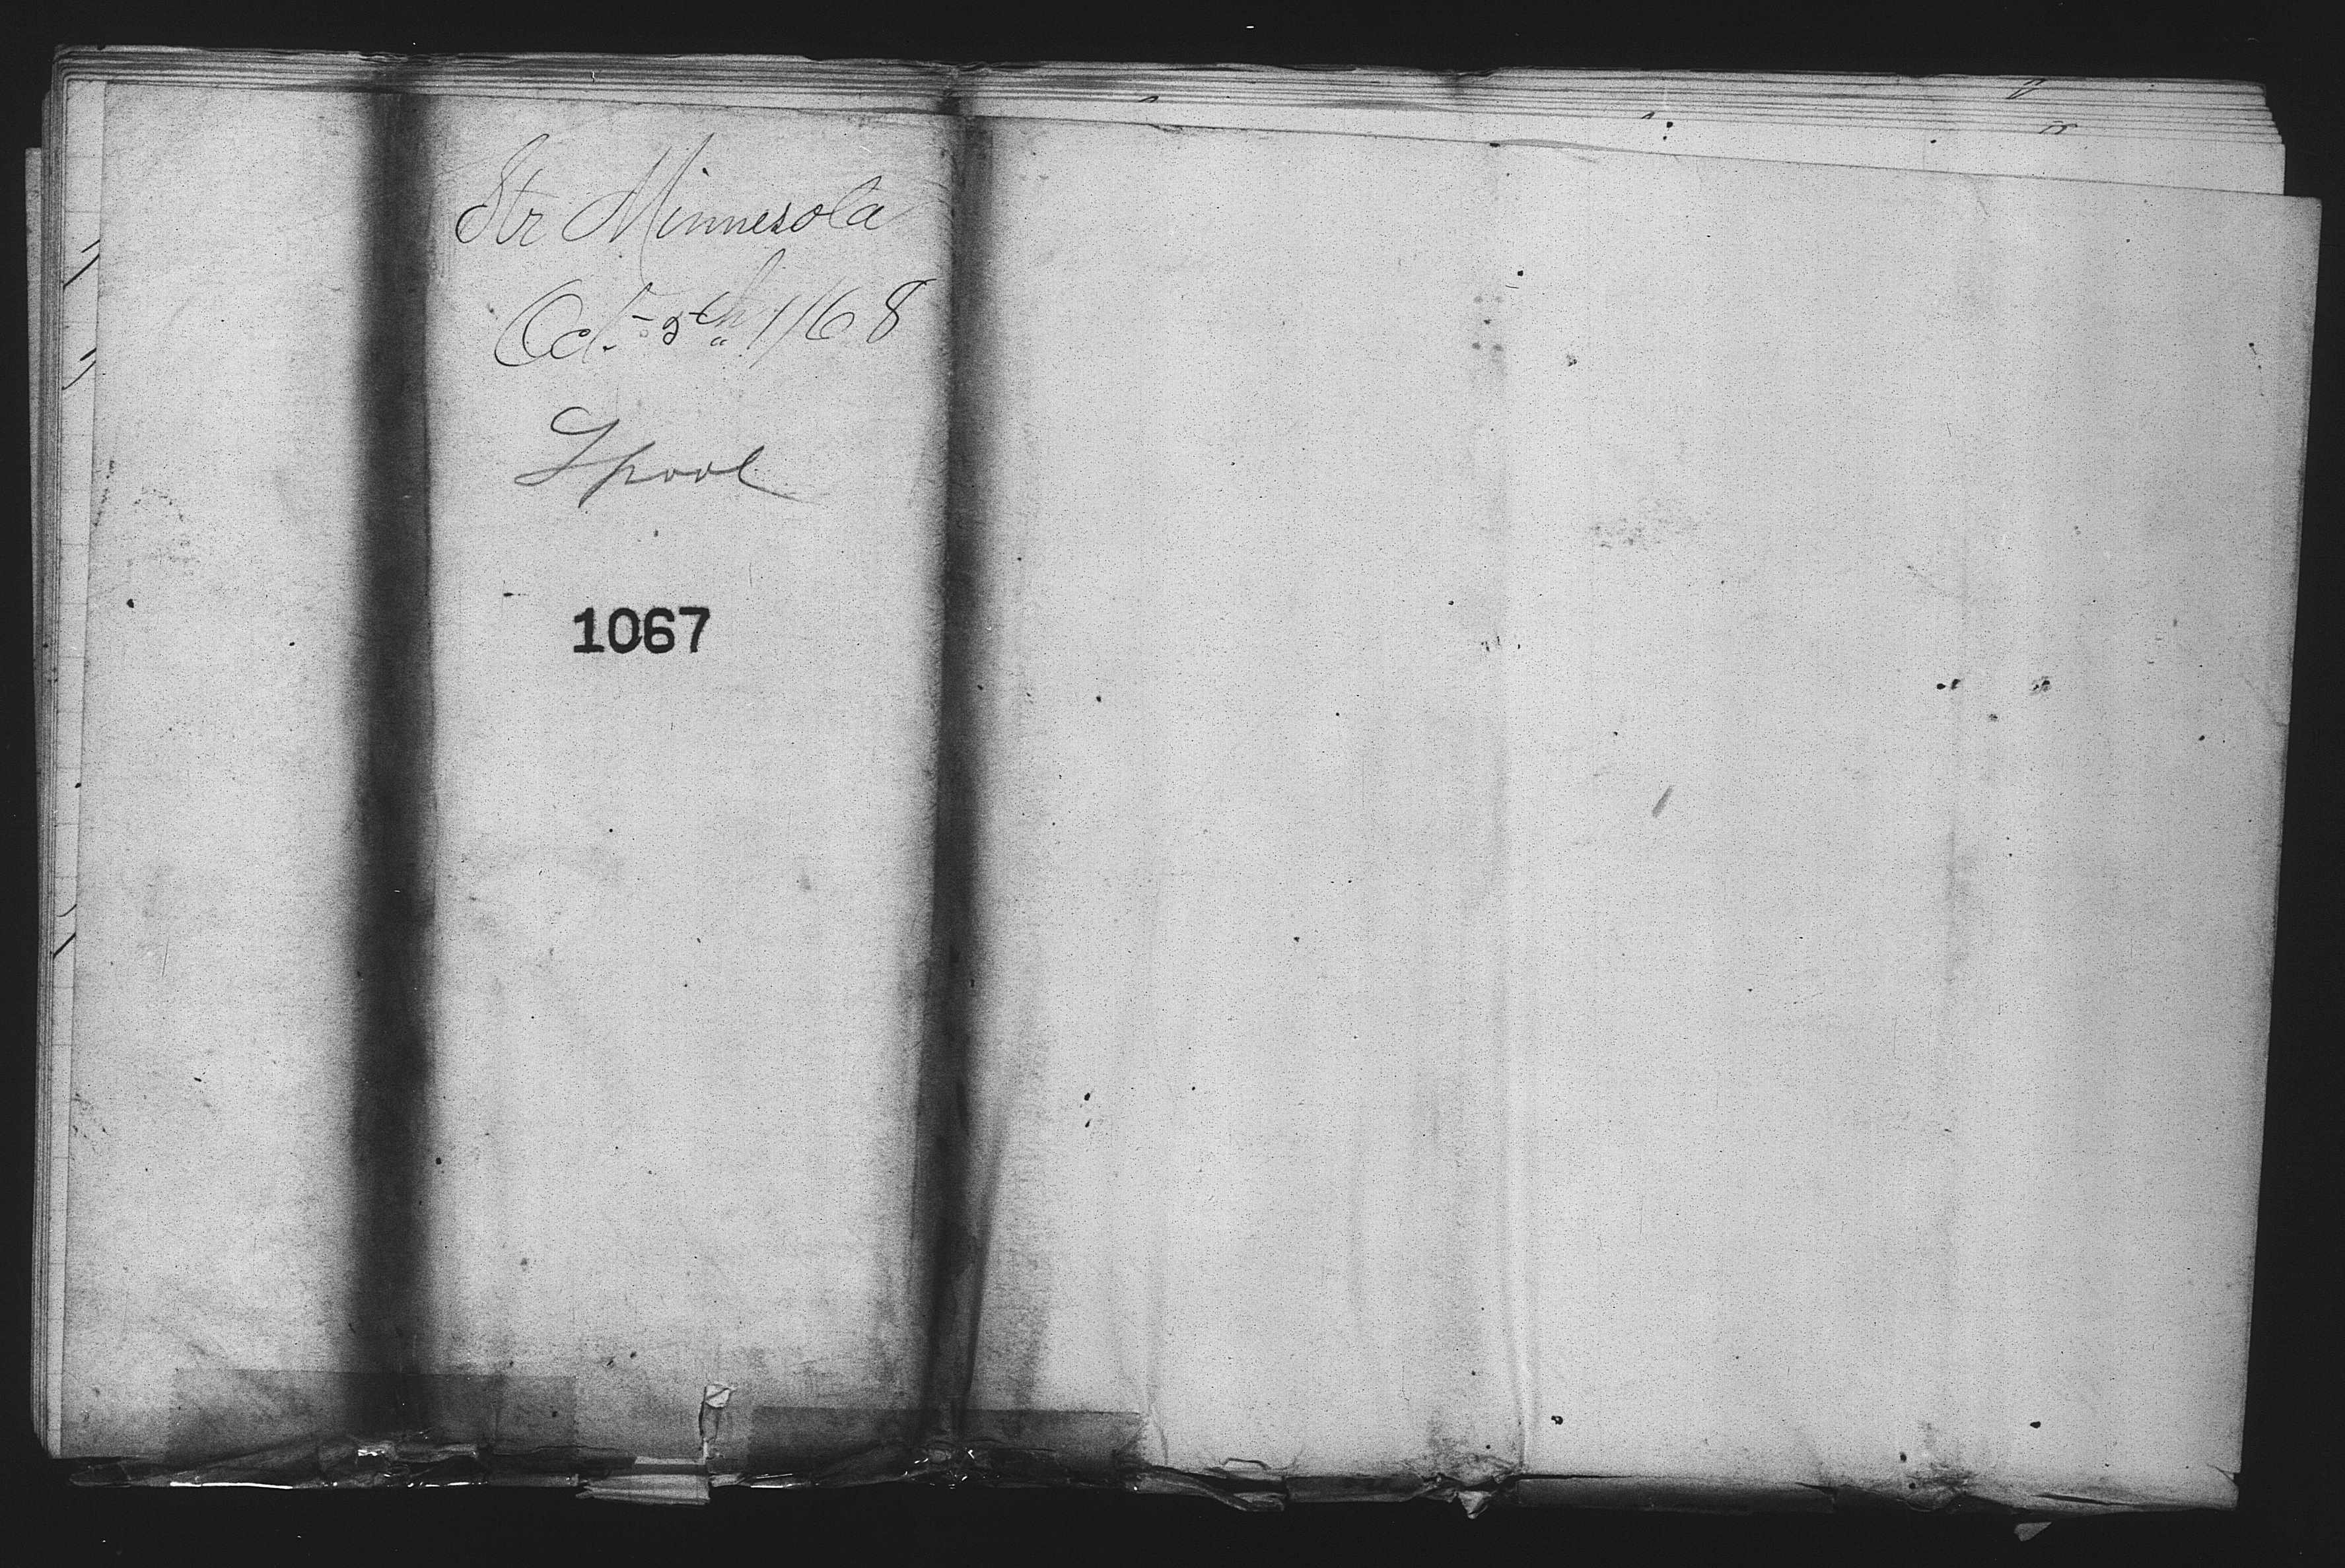 Str Minnesota
Oct. 5th 1/68
Lpool
1067